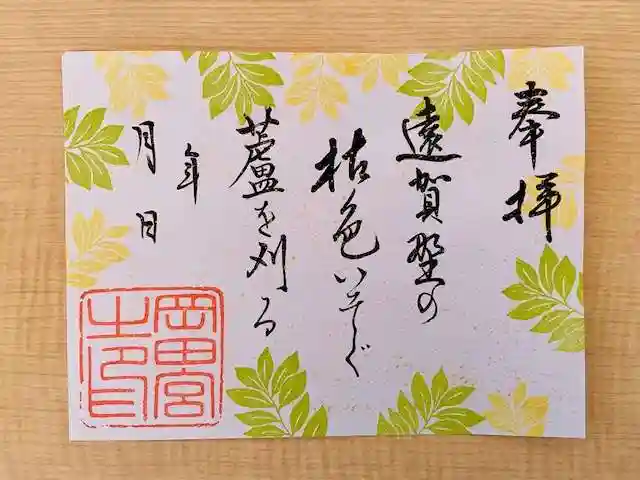 奉拝
遠賀野の
枯色いそぐ
蘆を刈る
年
月日
岡田宮
之印